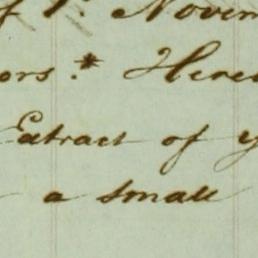 of 1st. Novem
ors.* Here
Extract of y
a small